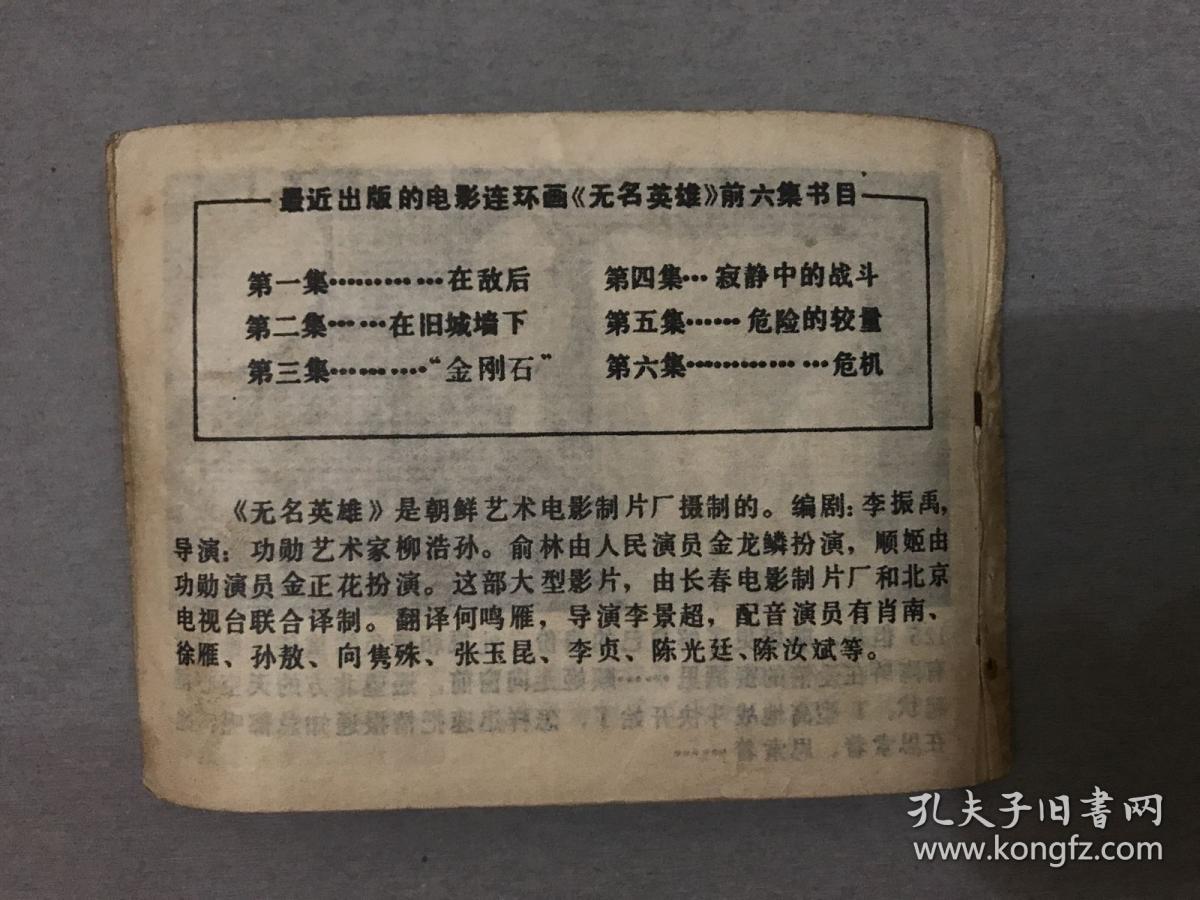 最近出版的电影连环画《无名英雄》前六集书目
第一集…………在敌后
第二集……在旧城墙下
第三集…………“金刚石”
第四集…寂静中的战斗
第五集……危险的较量
第六集……………危机
《无名英雄》是朝鲜艺术电影制片厂摄制的。编剧：李振禹，
导演：功勋艺术家柳浩孙。俞林由人民演员金龙鳞扮演，顺姬由
功勋演员金正花扮演。这部大型影片，由长春电影制片厂和北京
电视台联合译制。翻译何鸣雁，导演李景超，配音演员有肖南、
徐雁、孙敖、向隽殊、张玉昆、李贞、陈光廷、陈汝斌等。
孔夫子旧書网
www.kongfz.com